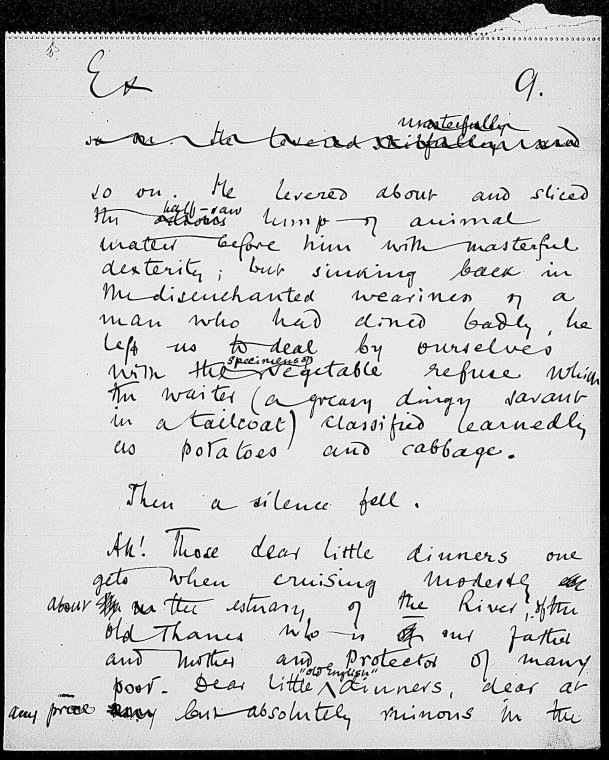 Ex 9.
so on. He levered skilfully masterfully and
so on. He levered about and sliced
the half-raw lump of animal
matter before him with masterful
dexterity; but sinking back in
the disenchanted weariness of a
man who had dined badly, he
left us to deal by ourselves
with the specimens of vegetable refuse which
the waiter (a greasy dingy savant
in a tailcoat) classified learnedly
as potatoes and cabbage.
Then a silence fell.
Ah! Those dear little dinners one
gets when cruising modestly
about the estuary of the River, of the
old Thames who is our father
and mother and Protector of many
poor. Dear little "old English" dinners, dear at
any price but absolutely ruinous in the